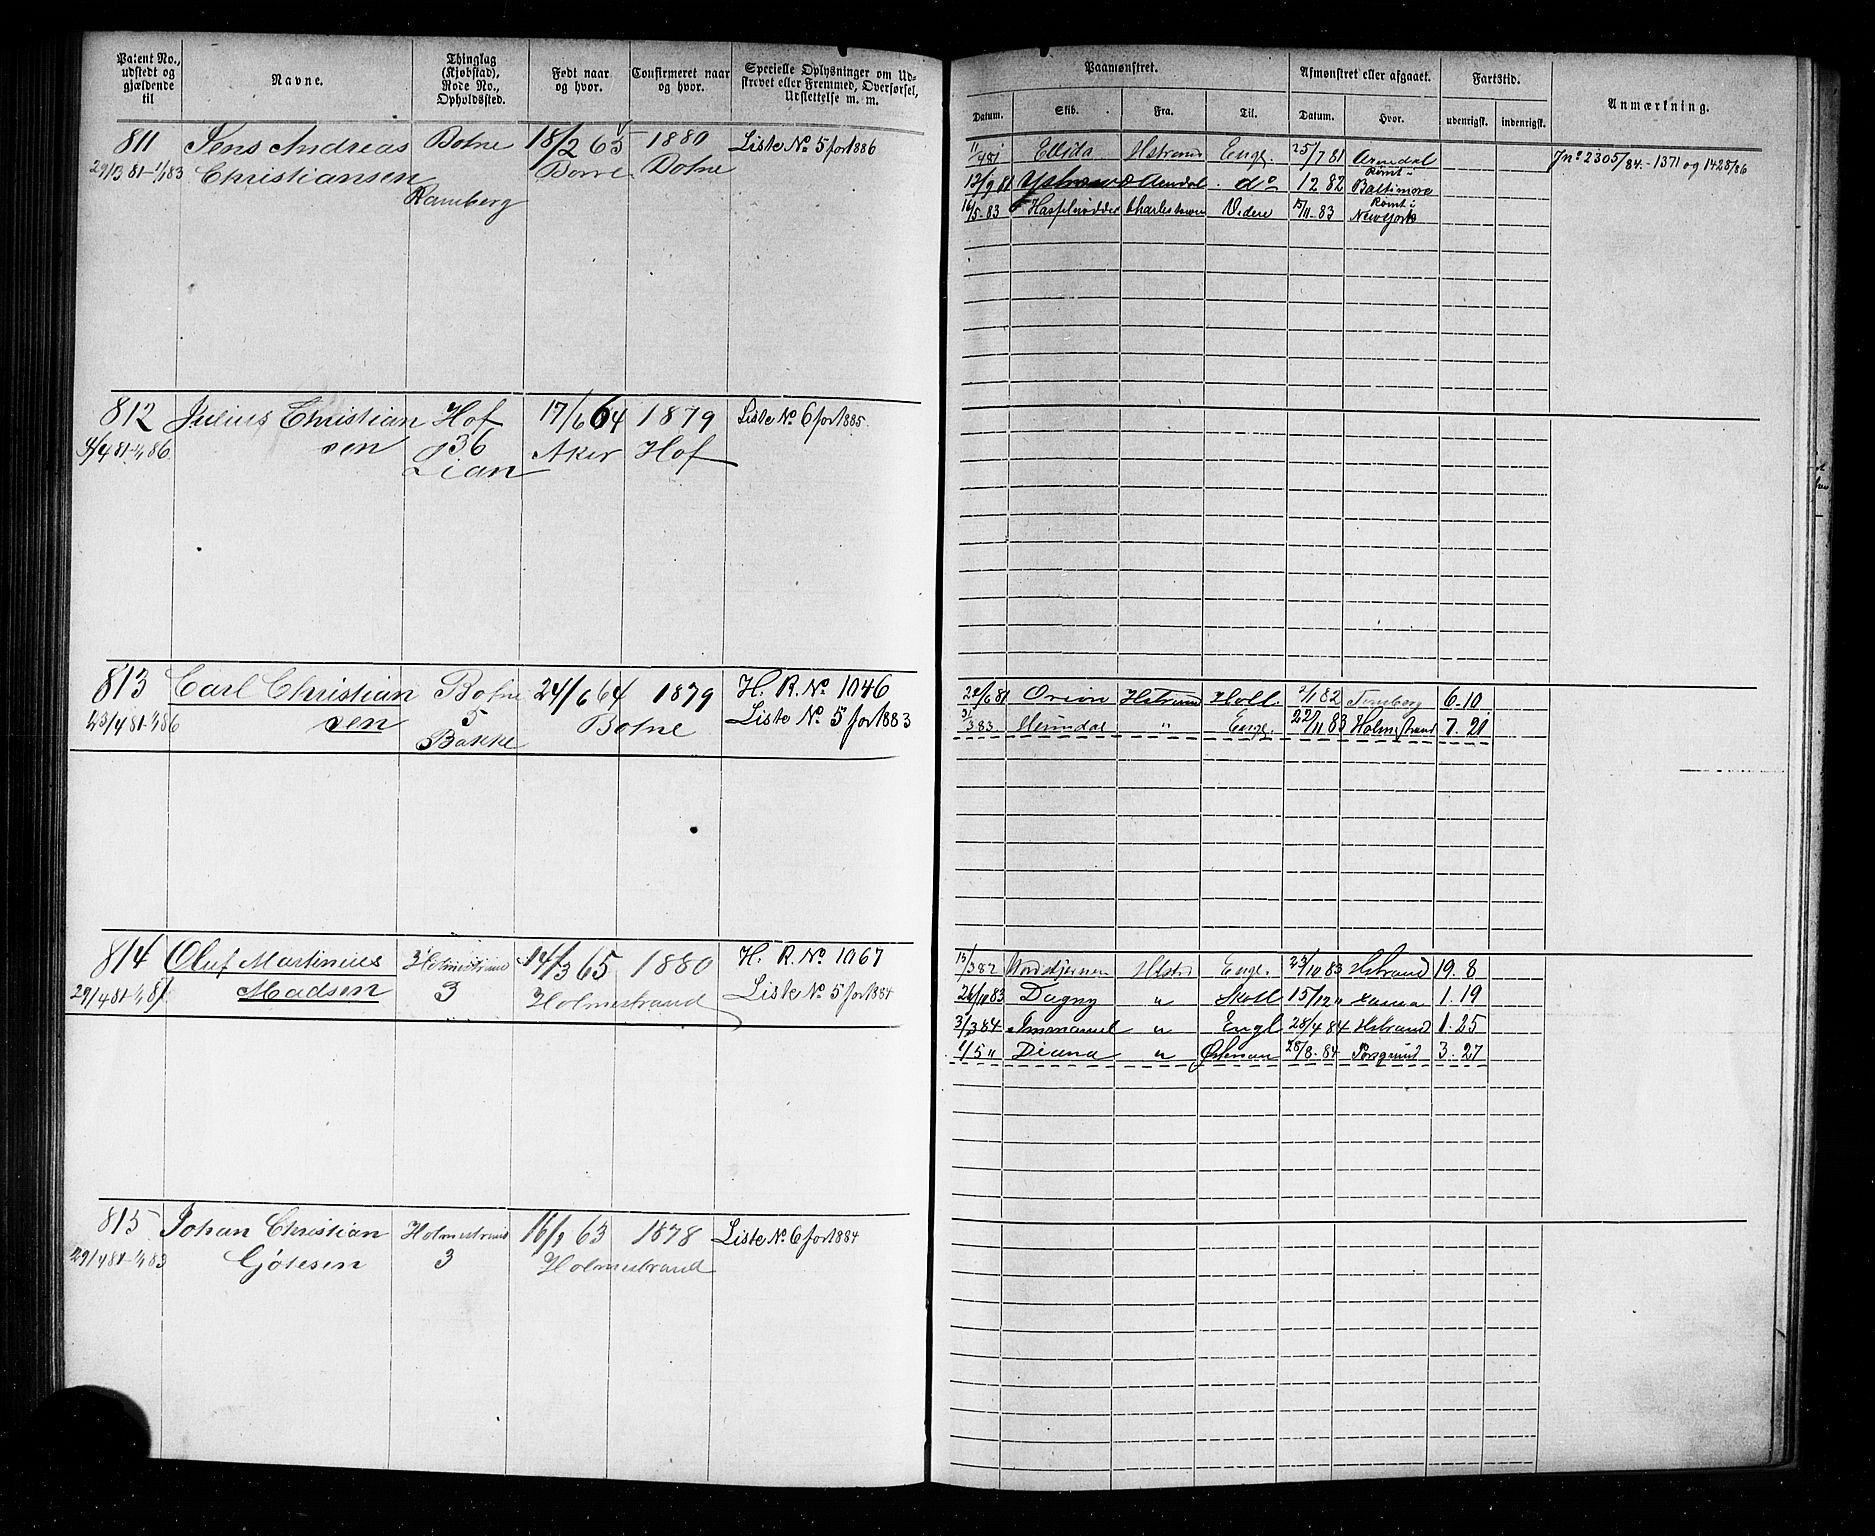 Patent No., udstedt og gjældende til
Navne.
Thinglag (Kjøbstad), Rode No., Opholdssted.
Født naar og hvor.
Confirmeret naar og hvor.
Specielle Oplysninger om Udskrevet eller Fremmed, Overførsel, Udslettelse m. m.
Paamønstret.
Afmønstret eller afgaaet.
Fartstid.
Anmærkning.
Datum.
Skib.
Fra.
Til.
Datum.
Hvor.
udenrigsk.
indenrigsk.
811 Jens Andreas Botne 18/2 65 1880 Liste No 5 for 1886
29/3 81-1/1 83 Christiansen Borre Botne
Ramberg
11/4 81 Ellida Hstrand Engl. 25/7 81 Arendal Jno 2305/84.-1371 og 1428/86
12/9 81 Arendal do 1 2 82 Rømt i Baltimore
16/5-83 Charlestown Videre 15/11-83 Rømt i Newyork
812 Julius Christian Hof 17/6 64 1879 Liste No 6 for 1885
sen 36 Aker Hof
Lian
813 Carl Christian Botne 24/6 64 1879 H. R. No 1046
23/4 81-1/1 86 sen 5 Botne Liste No 5 for 1883
Bakke
22/6 81 Orion Hstrand Holl. 2/1 82 Tønsberg 6.10
31/3 83 " Engl. 22/11 83 Holmestrand 7.21
814 Oluf Martinius Holmestrand 14/3 65 1880 H. R. No 1067
29/4 81 Madsen 3 Holmestrand Liste No 5 for 1884
15/3 82 Nordstjernen Hstrd Engl. 23/10 83 Hstrand 19.8
26/10 83 Dagny " Skotl 15/12 " 1.19
3/3 84 Immanuel " Engl 28/4 84 Hstrand 1.25
1/5 " Diana " 28/8.84 Porsgrund 3.27
815 Johan Christian Holmestrand 16/9 63 1878 Liste No 6 for 1884
29/4 81-1/1 83 Gjøtesen 3 Holmestrand